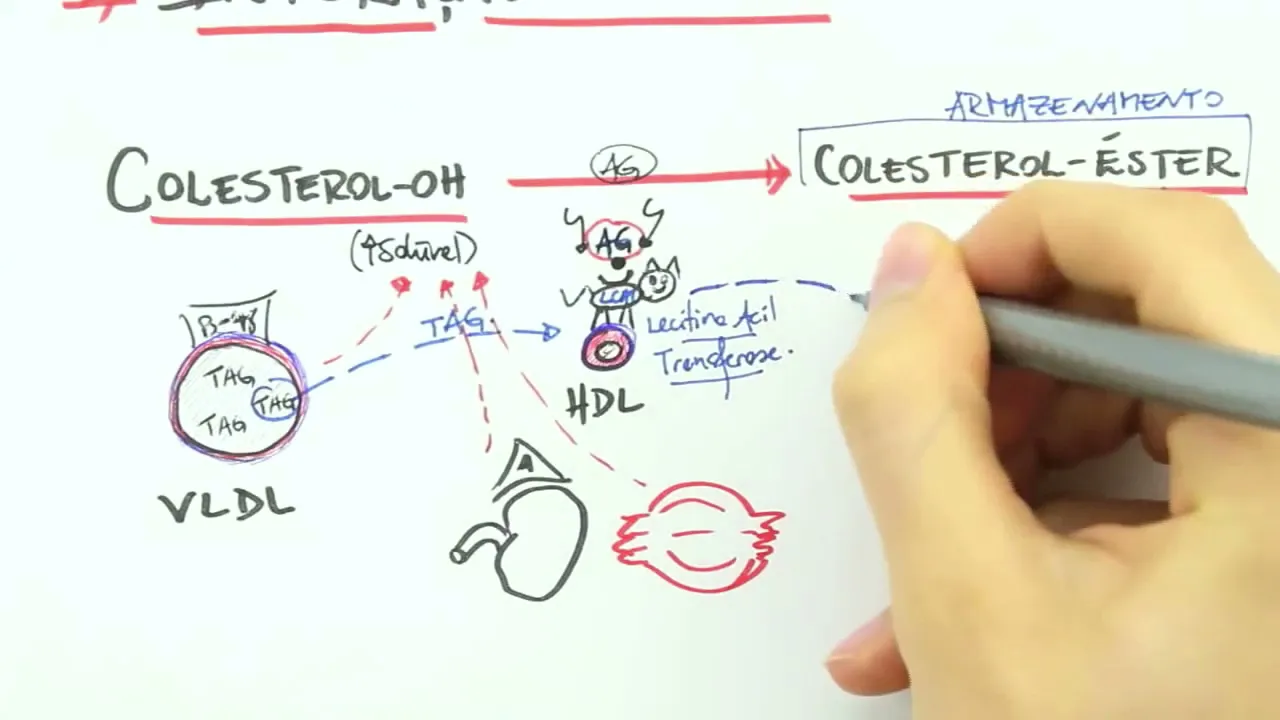 ARMAZENAMENTO
COLESTEROL-OH
AG
COLESTEROL-ÉSTER
(↑Solúvel)
AG
TAG
Lecitina Acil
Transferase.
TAG
TAG
TAG
HDL
A
VLDL